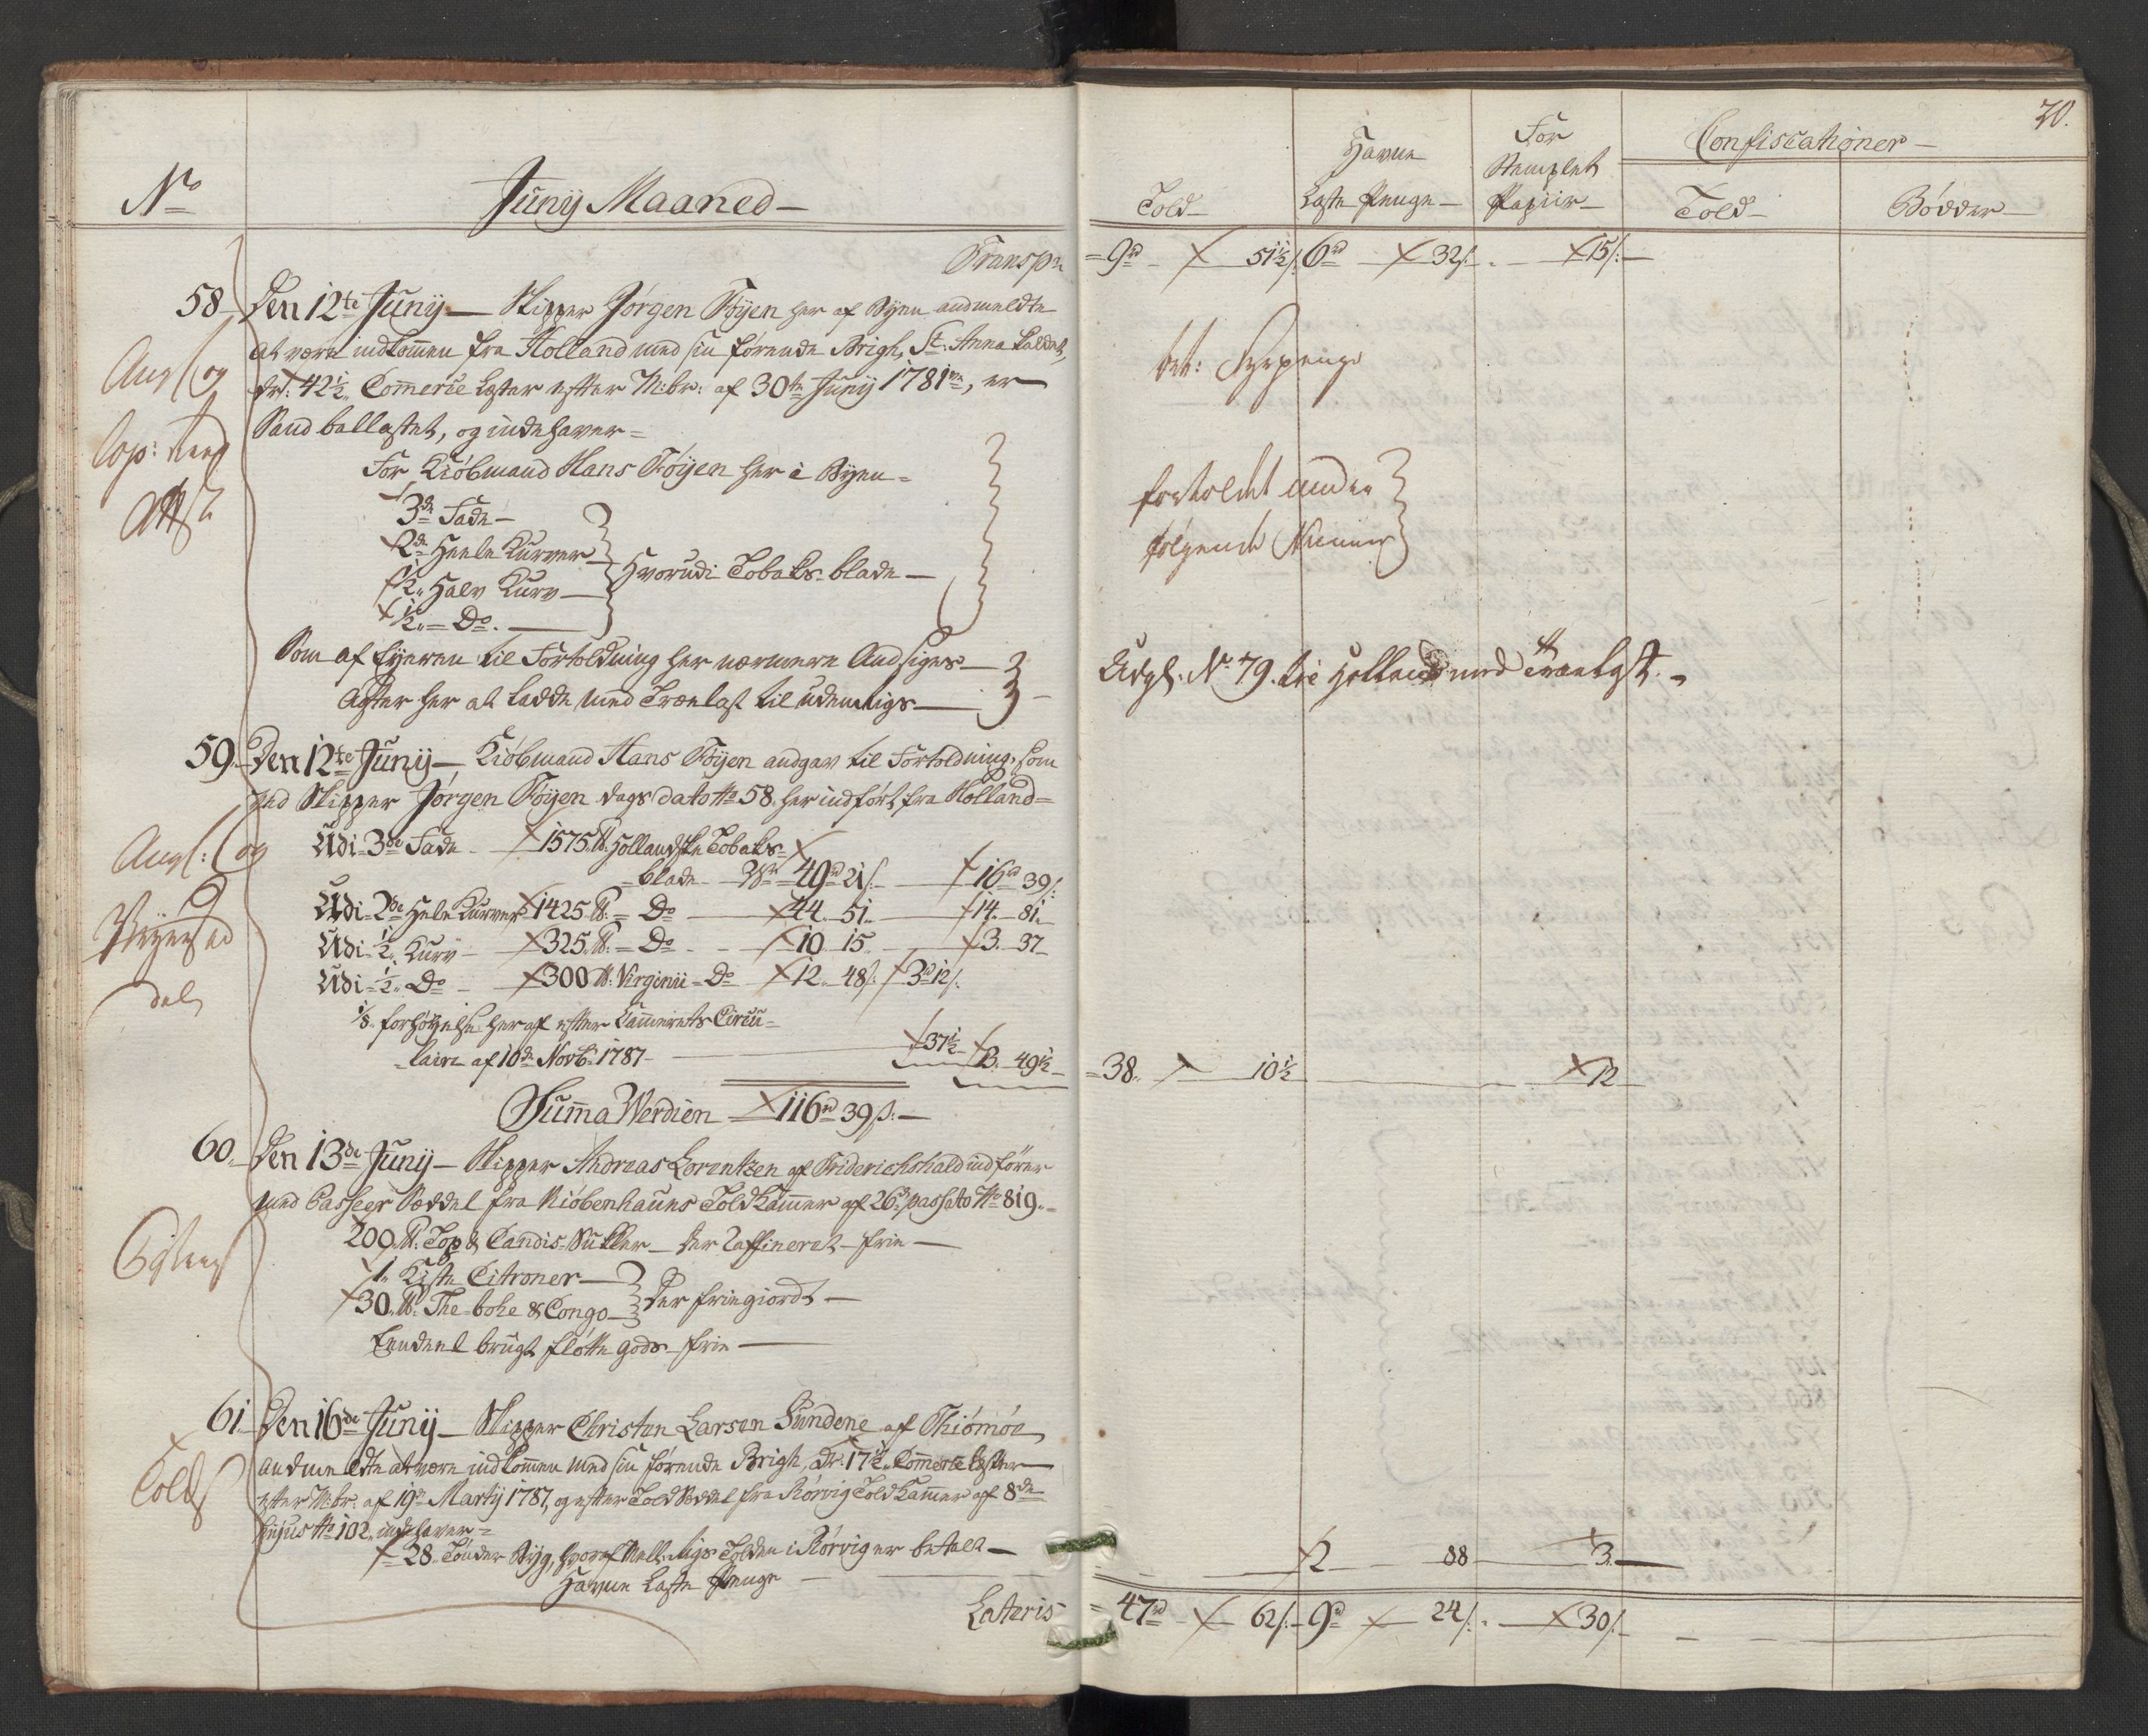 No
Junij Maaned
Transpt
58 Den 12te Junij Skipper Jørgen Føyen her af Byen andmeldte
at være indkommen fra Holland med sin førende Brigh, St: Anna kaldet,
dr: 42 1/2 Commerce Læster efter M:br: af 30te Junij 1781, er
Sand ballastet, og indehaver =
For Kiøbmand Hans Føyen her i Byen =
3de Fade
2de Heele Kurver
1/2 Halv Kurv
1/2 Do
Hvorudi Tobaks-blade
Som af Eyeren til Fortoldning her nærmere Andsiges
Agter her at ladde med Trælast til udenrigs
59. Den 12te Junij Kiøbmand Hans Føyen andgav til Fortoldning, som
med Skipper Jørgen Føyen dags dato No 58. her indført fra Holland =
Udi 3de Fade 1575 lb: Hollandske Tobaks-
blade 49rd 21s: 16rd 39s:
Udi 2de Hele Kurver 1425 lb: Do 44. 51. 14. 81.
Udi 1/2 Kurv 325 lb: Do 10. 15. 3. 37
Udi 1/2 Do 300 lb: Virginii Do 12. 48s: 3rd 12s.
1/8 forhøyelse her af efter Cammerets Circu-
laire af 10de Novb: 1787 37 1/2 3. 49 1/2
Summa Werdien 116rd 39s:
60. Den 13de Junij Skipper Andreas Lorentzen af Friderichshald indfører
med Passeer Seddel fra Kiøbenhauns Told Kammer af 26de passato No 819.
209 lb: Top & Candis-Sukker der raffineret frie
1 Kiste Citroner
30 lb: The-bohe & Congo
der friegiordt
Eendeel brugt fløtte gods frie
61. Den 16de Junij Skipper Christen Larsen Sundene af Thiømøe
andmeldte at være indkommen med sin førende Brigh, dr: 17 1/2 Commerce Læster
efter M:br: af 19de Martij 1787, og efter Told Seddel fra Rørvig Told Kammer af 8de
hujus No 102. indehaver =
28. Tønder Byg, hvoraf Tolden i Rørvig er betalt
Havne Læste Penge
Lateris
20.
Told
Havne
Læste Penge
For
Stemplet
Papiir
Confiscationer
Told
Bødder
9rd 51 1/2s 6rd 32s. 15s:
fortoldet under
følgende
Udgl: No 79. til Holland med Trælast.
38. 10 1/2 12
2 88 3.
47rd 62s: 9rd 24s: 30s: